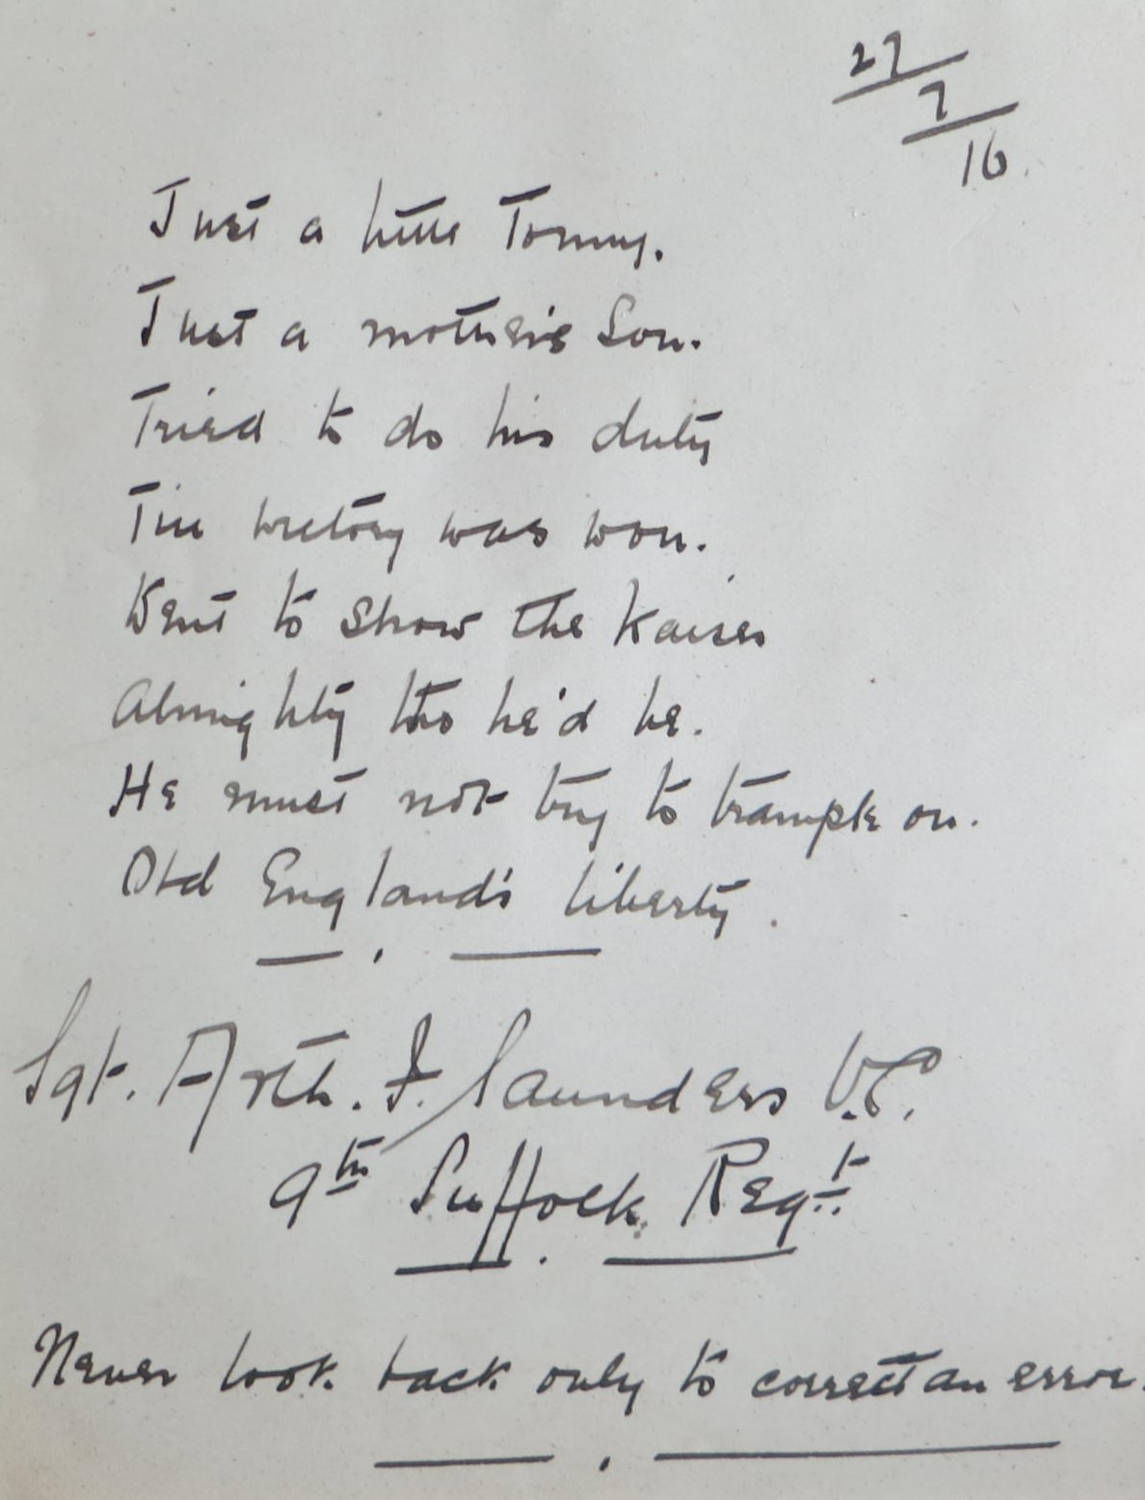 27/7/16.
Just a little Tommy.
Just a mother's Son.
Tried to do his duty
Till victory was won.
Went to show the Kaiser
Almighty tho he'd be.
He must not try to trample on.
Old England's liberty.
Sgt. Arth. F. Saunders V.C.
9th Suffolk Regt.
Never look back only to correct an error.